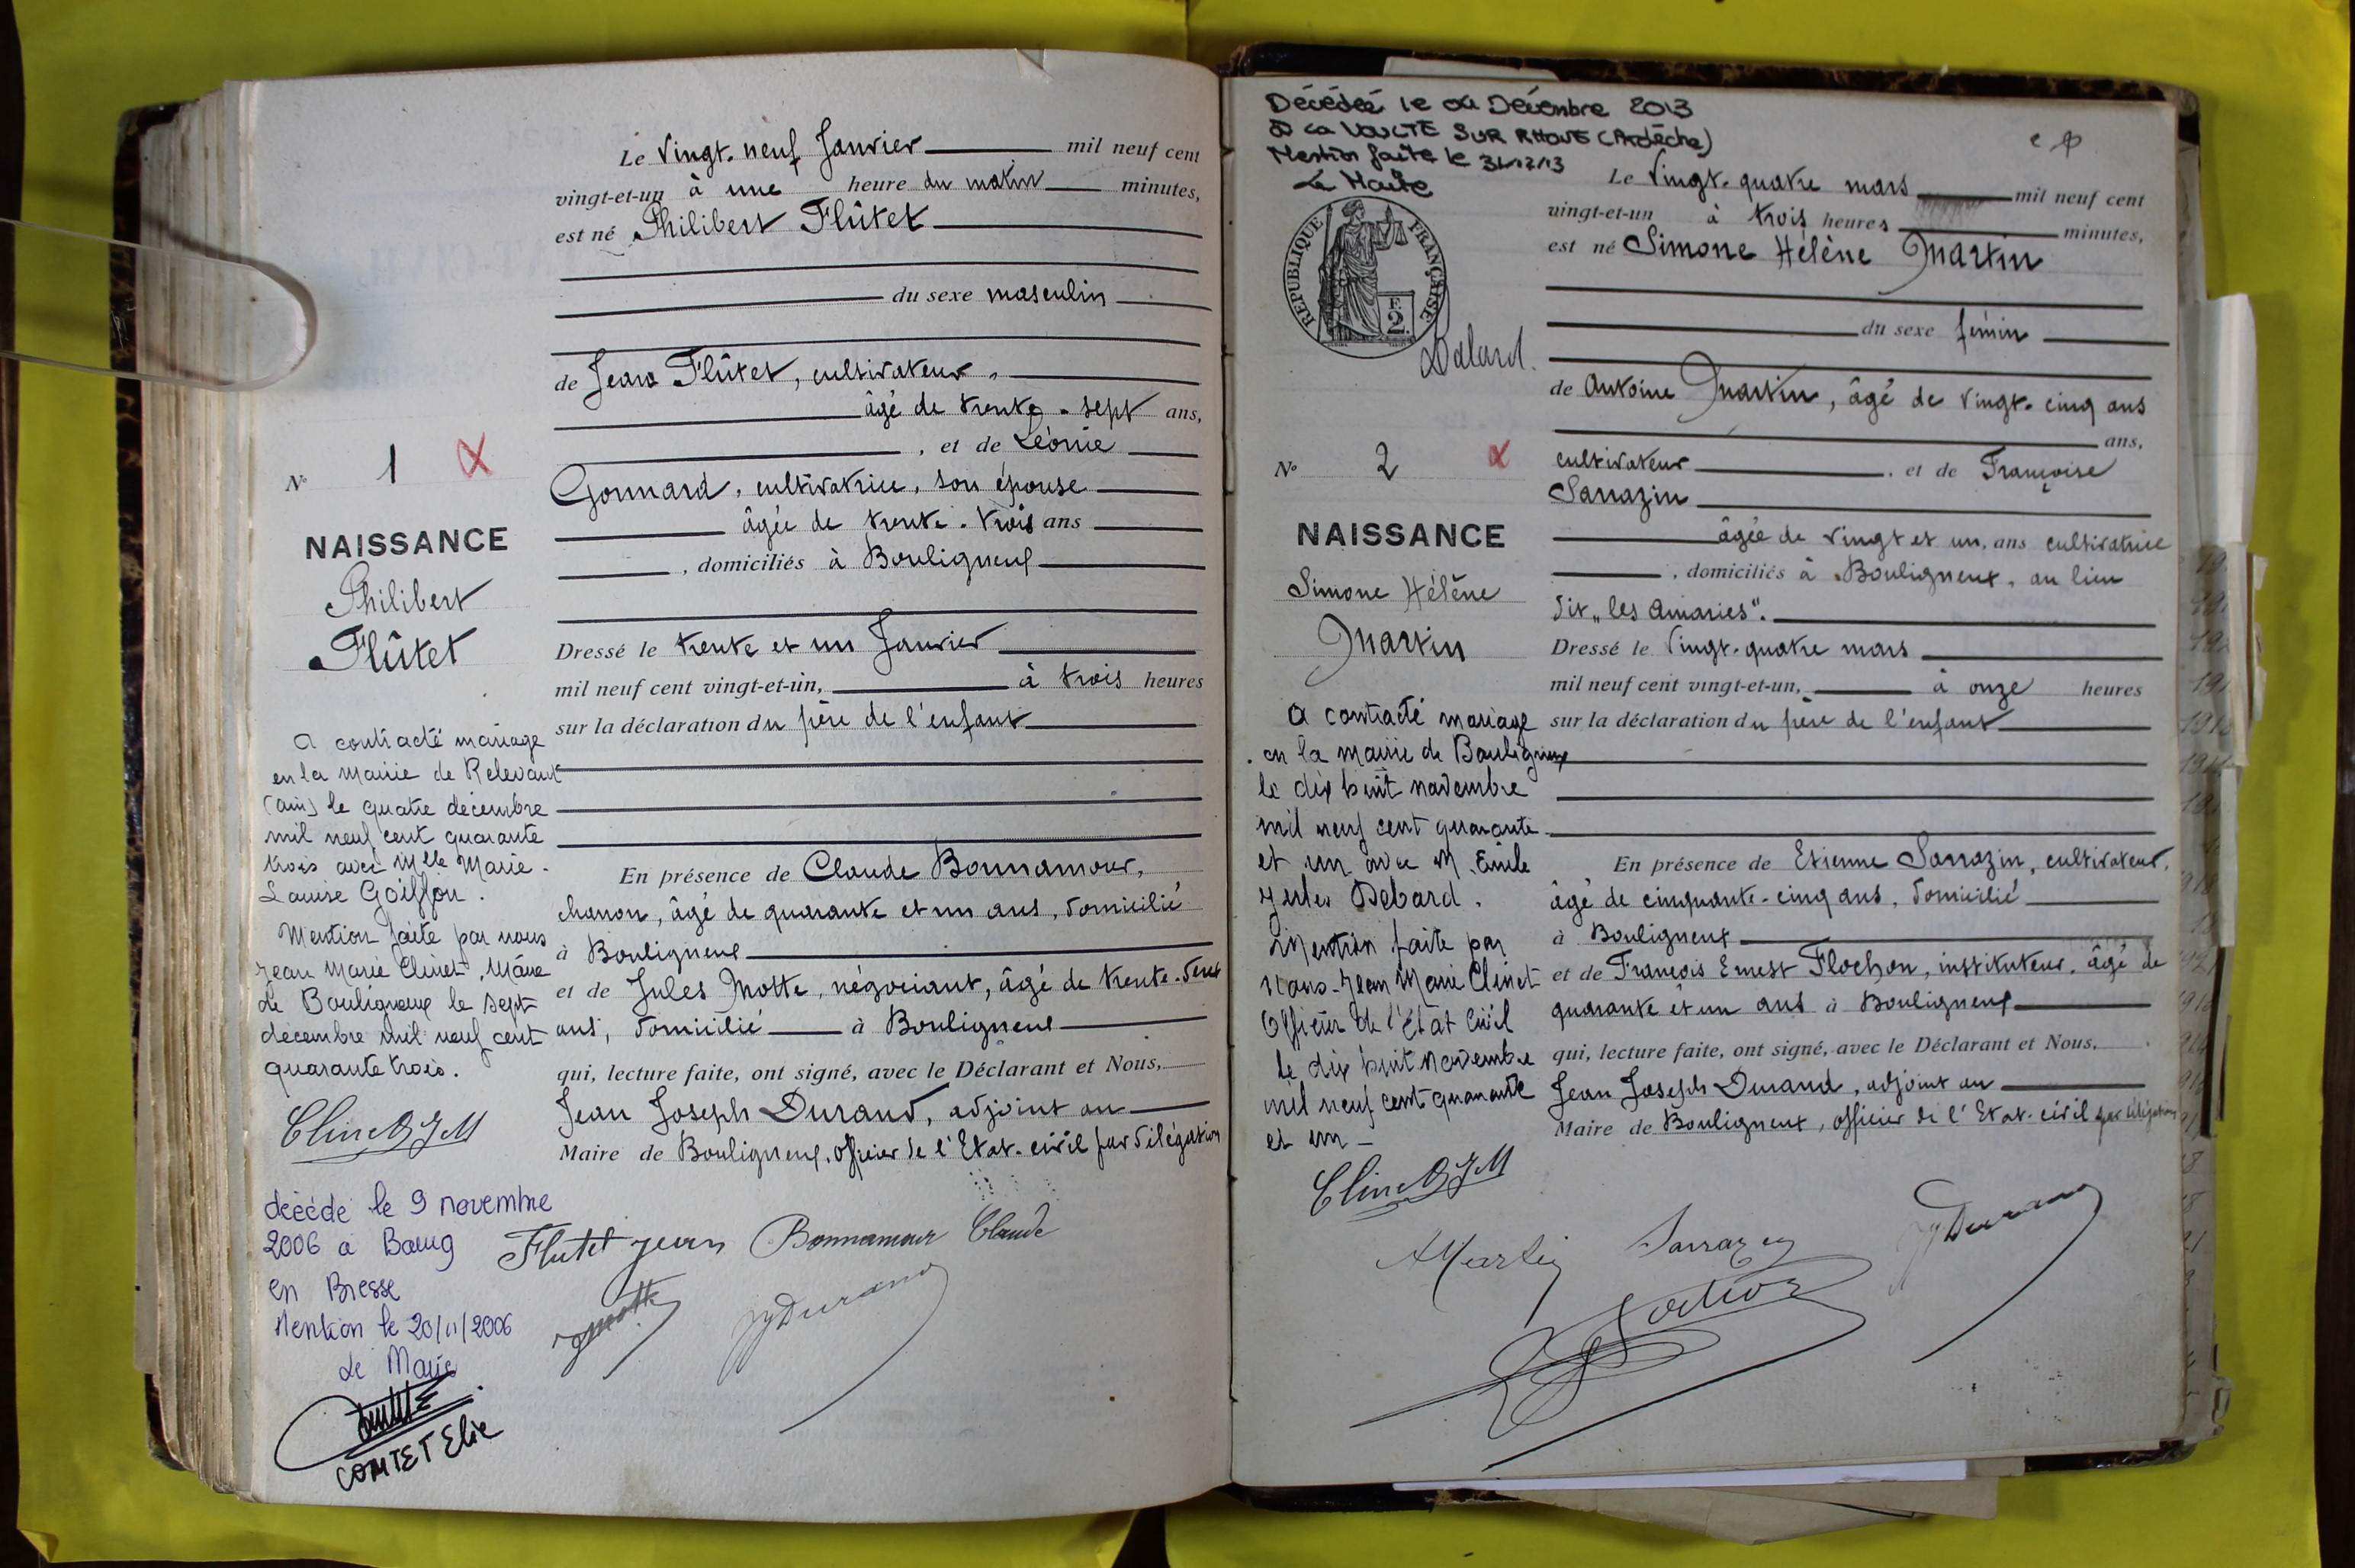 Le Vingt. neuf Janvier mil neuf cent
vingt-et-un à une heure du matin minutes,
est né Philibert Flûtet
du sexe masculin
de Jean Flûtet, cultivateur,
âgé de trente-sept ans,
, et de Léonie
N° 1
Gonnard, cultivatrice, son épouse
âgée de trente-trois ans
, domiciliés à Bouligneux
NAISSANCE
Philibert
Flûtet
Dressé le trente et un Janvier
mil neuf cent vingt-et-un, à trois heures
sur la déclaration du père de l'enfant
En présence de Claude Bonnamour,
charron, âgé de quarante et un ans, domicilié
à Bouligneux
et de Jules Motte, négociant, âgé de trente-deux
ans, domicilié à Bouligneux
qui, lecture faite, ont signé, avec le Déclarant et Nous,
Jean Joseph Durand, adjoint au
Maire de Bouligneux, officier de l'Etat-civil par délégation
A contracté mariage
en la Mairie de Relevant
(Ain) le quatre décembre
mil neuf cent quarante
trois avec Mlle Marie-
Louise Goiffon.
Mention faite par nous
Jean Marie Clinet, Maire
de Bouligneux le sept
décembre mil neuf cent
quarante trois.
Clinet J M
décédé le 9 novembre
2006 à Bourg
en Bresse
Mention le 20/11/2006
Le Maire
COMTET Elie
Flutet Jean Bonnamour Claude
J Motte JJ Durand
Décédée le 04 Décembre 2013
à La VOULTE SUR RHONE (Ardèche)
Mention faite le 31/12/13
Le Maire
REPUBLIQUE FRANÇAISE
F.
2
Le Vingt-quatre mars mil neuf cent
vingt-et-un à trois heures minutes,
est né Simone Hélène Martin
du sexe féminin
de Antoine Martin, âgé de vingt-cinq ans
ans,
N° 2
cultivateur, et de Françoise
Sarrazin
âgée de vingt et un, ans cultivatrice
, domiciliés à Bouligneux, au lieu
dit "les Amaries".
NAISSANCE
Simone Hélène
Martin
Dressé le Vingt-quatre mars
mil neuf cent vingt-et-un, à onze heures
sur la déclaration du père de l'enfant
En présence de Etienne Sarrazin, cultivateur,
âgé de cinquante-cinq ans, domicilié
à Bouligneux
et de François Ernest Flochon, instituteur, âgé de
quarante et un ans à Bouligneux
qui, lecture faite, ont signé, avec le Déclarant et Nous,
Jean Joseph Durand, adjoint au
Maire de Bouligneux, officier de l'Etat-civil par délégation
A contracté mariage
en la mairie de Bouligneux
le dix huit novembre
mil neuf cent quarante
et un avec M. Emile
Jules Debard.
Mention faite par
Nous-Jean Marie Clinet
Officier de l'Etat Civil
le dix huit Novembre
mil neuf cent quarante
et un -
Clinet J M
A Martin Sarrazin JJ Durand
Flochon